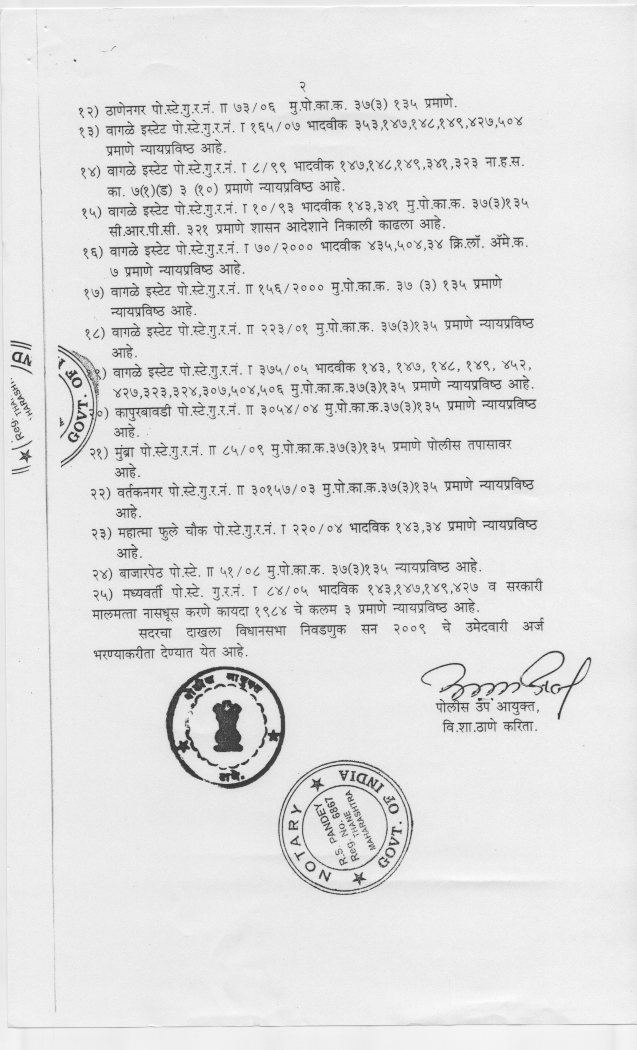 २
१२) ठाणेनगर पो.स्टे.गु.र.नं. II ७३/०६ मु.पो.का.क. ३७(३) १३५ प्रमाणे.
१३) वागळे इस्टेट पो.स्टे.गु.र.नं. I १६५/०७ भादवीक ३५३,१४७,१४८,१४९,४२७,५०४
प्रमाणे न्यायप्रविष्ठ आहे.
१४) वागळे इस्टेट पो.स्टे.गु.र.नं. I ८/९९ भादवीक १४७,१४८,१४९,३४१,३२३ ना.ह.स.
का. ७(१)(ड) ३ (१०) प्रमाणे न्यायप्रविष्ठ आहे.
१५) वागळे इस्टेट पो.स्टे.गु.र.नं. I १०/९३ भादवीक १४३,३४१ मु.पो.का.क. ३७(३)१३५
सी.आर.पी.सी. ३२१ प्रमाणे शासन आदेशाने निकाली काढला आहे.
१६) वागळे इस्टेट पो.स्टे.गु.र.नं. I ७०/२००० भादवीक ४३५,५०४,३४ क्रि.लॉ. ॲमे.क.
७ प्रमाणे न्यायप्रविष्ठ आहे.
१७) वागळे इस्टेट पो.स्टे.गु.र.नं. II १५६/२००० मु.पो.का.क. ३७ (३) १३५ प्रमाणे
न्यायप्रविष्ठ आहे.
१८) वागळे इस्टेट पो.स्टे.गु.र.नं. II २२३/०१ मु.पो.का.क. ३७(३)१३५ प्रमाणे न्यायप्रविष्ठ
आहे.
९) वागळे इस्टेट पो.स्टे.गु.र.नं. I ३७५/०५ भादवीक १४३, १४७, १४८, १४९, ४५२,
४२७,३२३,३२४,३०७,५०४,५०६ मु.पो.का.क.३७(३)१३५ प्रमाणे न्यायप्रविष्ठ आहे.
२०) कापुरबावडी पो.स्टे.गु.र.नं. II ३०५४/०४ मु.पो.का.क.३७(३)१३५ प्रमाणे न्यायप्रविष्ठ
आहे.
२१) मुंब्रा पो.स्टे.गु.र.नं. II ८५/०९ मु.पो.का.क.३७(३)१३५ प्रमाणे पोलीस तपासावर
आहे.
२२) वर्तकनगर पो.स्टे.गु.र.नं. II ३०१५७/०३ मु.पो.का.क.३७(३)१३५ प्रमाणे न्यायप्रविष्ठ
आहे.
२३) महात्मा फुले चौक पो.स्टे.गु.र.नं. I २२०/०४ भादविक १४३,३४ प्रमाणे न्यायप्रविष्ठ
आहे.
२४) बाजारपेठ पो.स्टे. II ५१/०८ मु.पो.का.क. ३७(३)१३५ न्यायप्रविष्ठ आहे.
२५) मध्यवर्ती पो.स्टे. गु.र.नं. I ८४/०५ भादविक १४३,१४७,१४९,४२७ व सरकारी
मालमत्ता नासधूस करणे कायदा १९८४ चे कलम ३ प्रमाणे न्यायप्रविष्ठ आहे.
सदरचा दाखला विधानसभा निवडणुक सन २००९ चे उमेदवारी अर्ज
भरण्याकरीता देण्यात येत आहे.
पोलीस उप आयुक्त,
वि.शा.ठाणे करिता.
पोलीस आयुक्त
ठाणे.
NOTARY ★ GOVT. OF INDIA ★
R.S. PANDEY
Reg. No. 6867
THANE
MAHARASHTRA
GOVT. OF